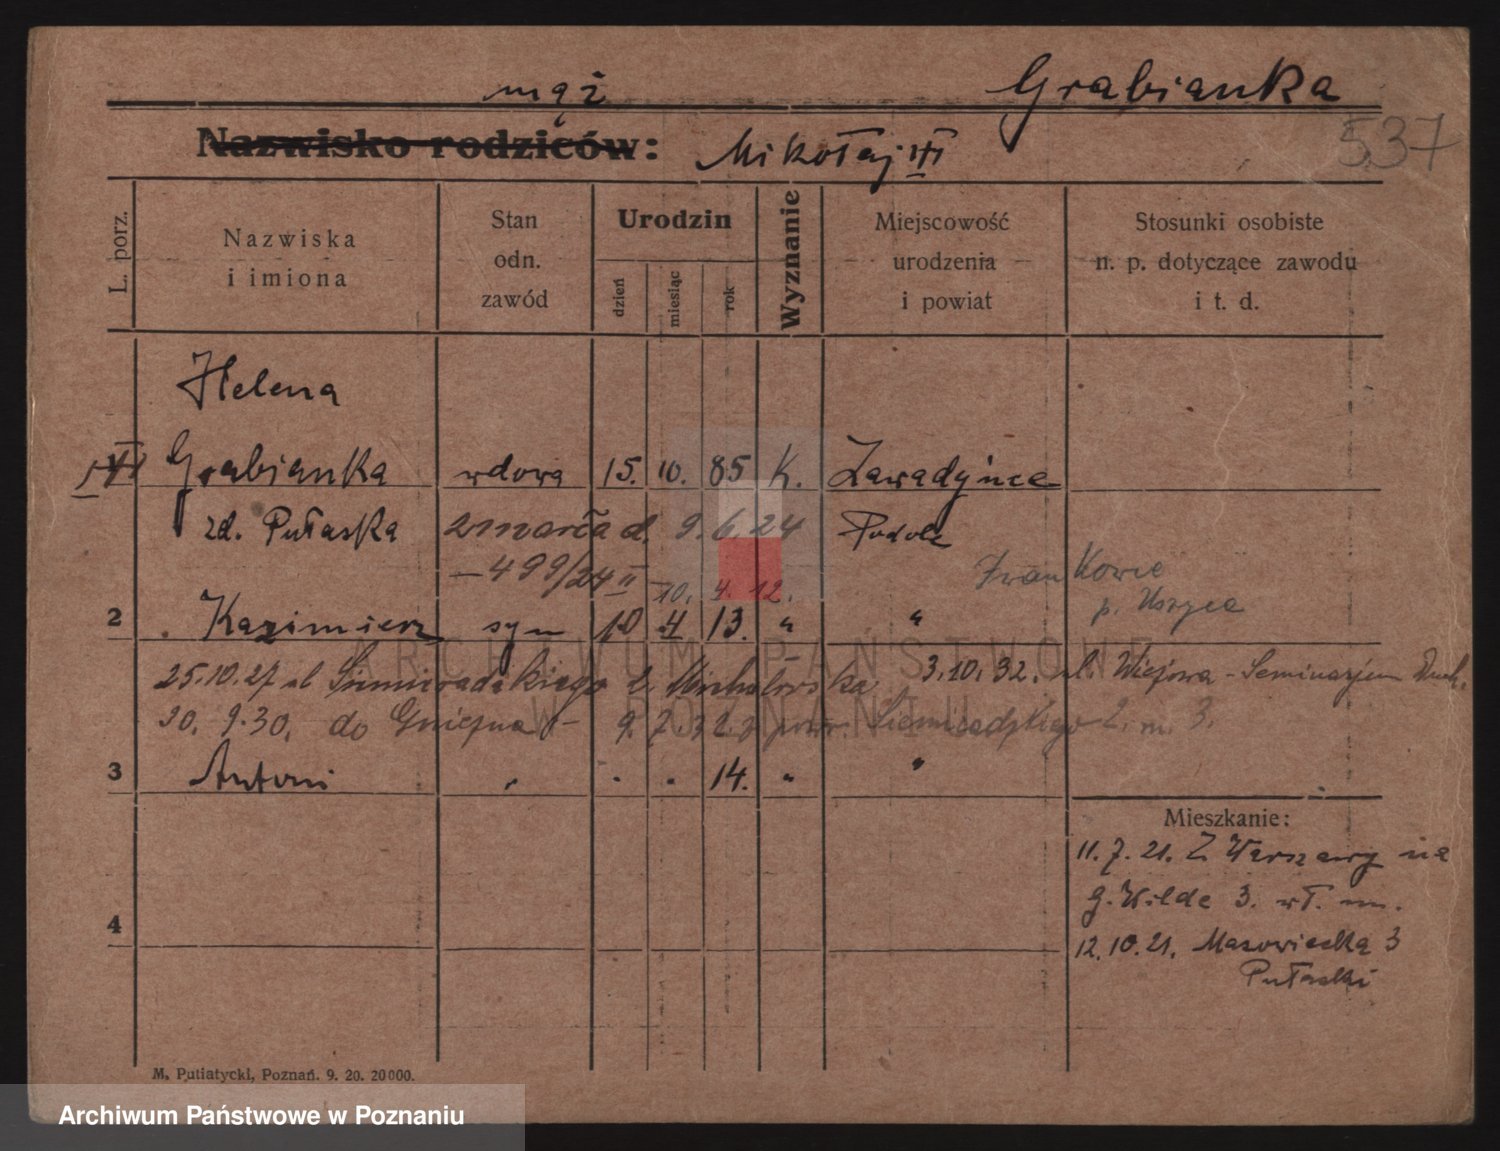 mąż Grabianka
Nazwisko rodziców: Mikołaj VI 537
L. porz.
Nazwiska
i imiona
Stan
odn.
zawód
Urodzin
dzień
miesiąc
rok
Wyznanie
Miejscowość
urodzenia
i powiat
Stosunki osobiste
n. p. dotyczące zawodu
i t. d.
Helena
Grabianka wdowa 15. 10. 85 K. Zawadyńce
zd. Pułaska zmarła d. 9.6.24 Podole
— 499/24 II 10. 4. 12. Iwankowce
p. Uszyca
2 Kazimierz syn 10 4 13. " "
25.10.27 ul Siemiradzkiego 2 3.10.32. ul. Wiejowa - Seminarjum Duch.
30. 9.30. do Gniezna - Siemiradzkiego 2. m. 3.
3 Antoni " . . 14. " "
Mieszkanie:
11.7.21. Z Warszawy na
g. Wilde 3. wł. m.
4
12.10.21. Mazowiecka 3
Pułaski
M. Putiatycki, Poznań. 9. 20. 20000.
ARCHIWUM PAŃSTWOWE
W POZNANIU
Archiwum Państwowe w Poznaniu